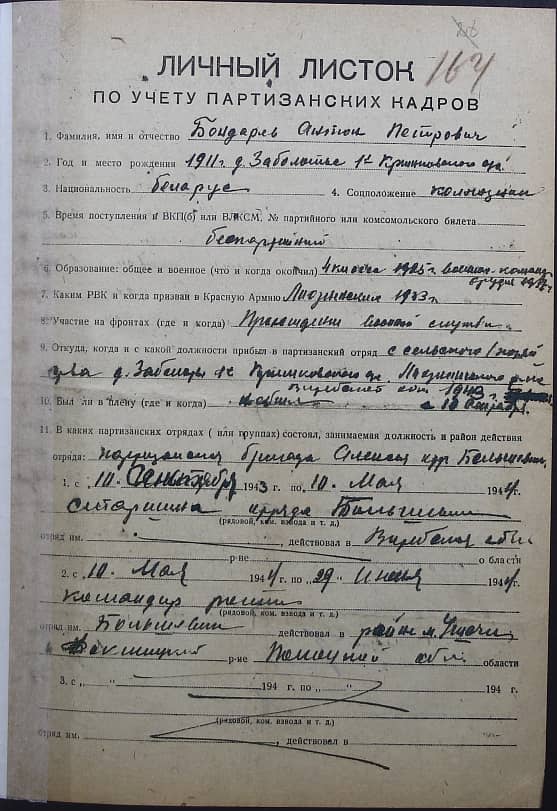 164
ЛИЧНЫЙ ЛИСТОК
ПО УЧЕТУ ПАРТИЗАНСКИХ КАДРОВ
1. Фамилия, имя и отчество Бондарев Антон Петрович
2. Год и место рождения 1911 г. д. Заболотье
3. Национальность беларус 4. Соцположение колхозник
5. Время поступления в ВКП(б) или ВЛКСМ, № партийного или комсомольского билета
беспартийный
6. Образование: общее и военное (что и когда окончил) 4 класса 1925 г.
7. Каким РВК и когда призван в Красную Армию Лиозненским 1933 г.
8. Участие на фронтах (где и когда) службы
9. Откуда, когда и с какой должности прибыл в партизанский отряд с сельского
д. Лиозненского р-на
Витебской обл. 1943 г.
10. Был ли в плену (где и когда) не был с 10 сентября
11. В каких партизанских отрядах ( или группах) состоял, занимаемая должность и район действия
отряда: партизанская бригада Алексея отряд Большевик
1. с „10 Сентября 1943 г. по „10" Мая 1944 г.
старшина отряда Большевик
(рядовой, ком. взвода и т. д.)
отряд им. , действовал в Витебской обл.
р-не о области
2. с „10" Мая 1944 г. по „29" Июня 1944 г.
командир роты
(рядовой, ком. взвода и т. д.)
отряд им. Большевик действовал в район м. Ушачи
и Докшицкий р-не Полоцкой обл. области
3. с „ " 194 г. по „ " 194 г.
(рядовой, ком. взвода и т. д.)
отряд им. , действовал в